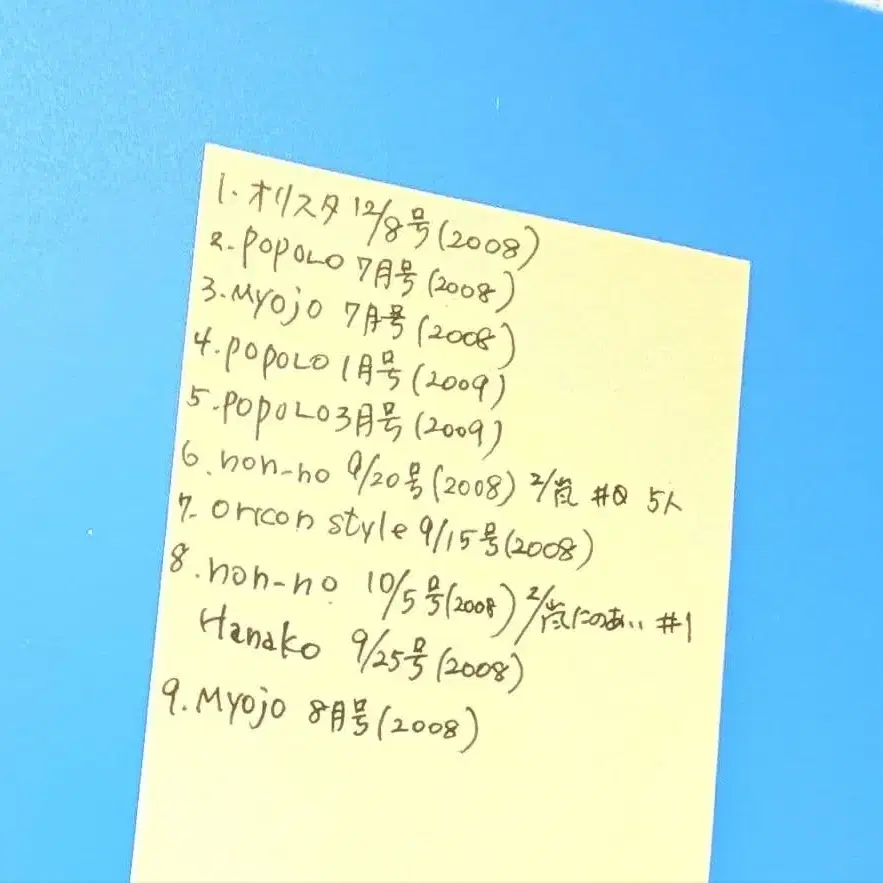 1. オリスタ 12/8号(2008)
2. POPOLO 7月号(2008)
3. Myojo 7月号(2008)
4. POPOLO 1月号(2009)
5. POPOLO 3月号(2009)
6. non-no 9/20号(2008) 2/嵐 #0 5人
7. oricon style 9/15号(2008)
8. non-no 10/5号(2008) 2/嵐にのあい #1
Hanako 9/25号(2008)
9. Myojo 8月号(2008)